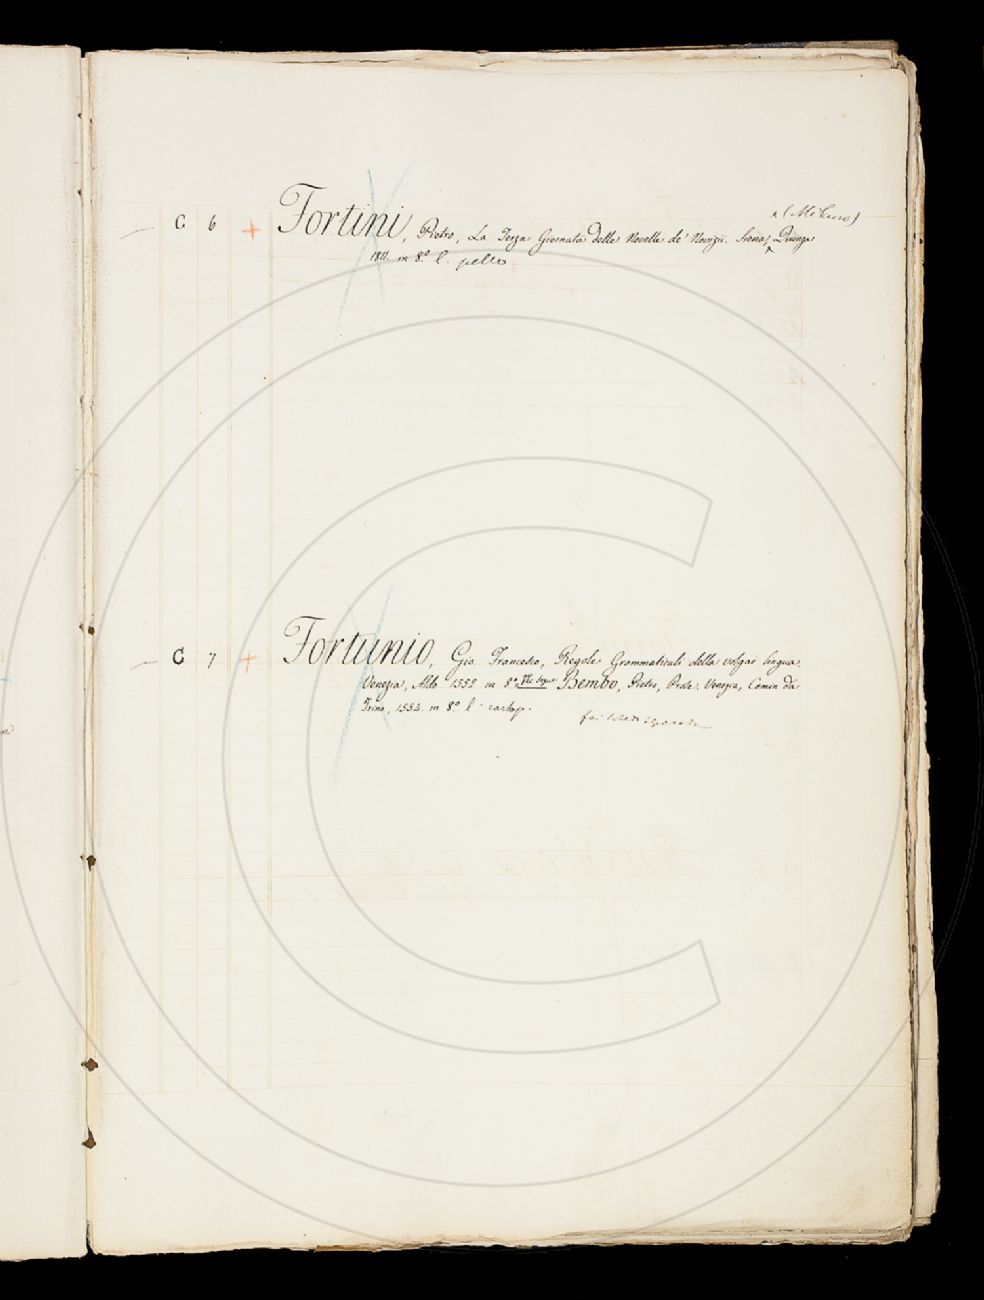 (Milano)
C 6 + Fortini, Pietro, La Terza Giornata delle Novelle de' Novizii. Siena, Quinza
1811. in 8.º l. pelle
C 7 + Fortunio, Gio. Francesco, Regole Grammaticali della volgar lingua.
Venezia, Aldo 1552 in 8.º Bembo, Pietro, Prose. Venezia, Comin da
Trino, 1554. in 8.º l. cartap.